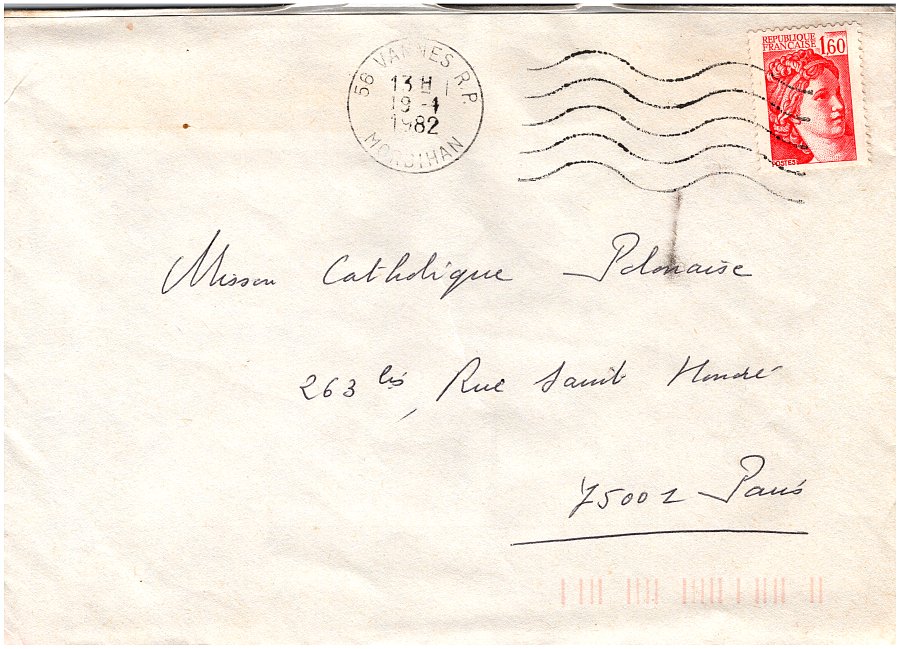 56 VANNES R.P.
13 H
19 -1
1982
MORBIHAN
REPUBLIQUE
FRANCAISE 1,60
POSTES
Mission Catholique Polonaise
263 bis, Rue Saint Honoré
75001 Paris